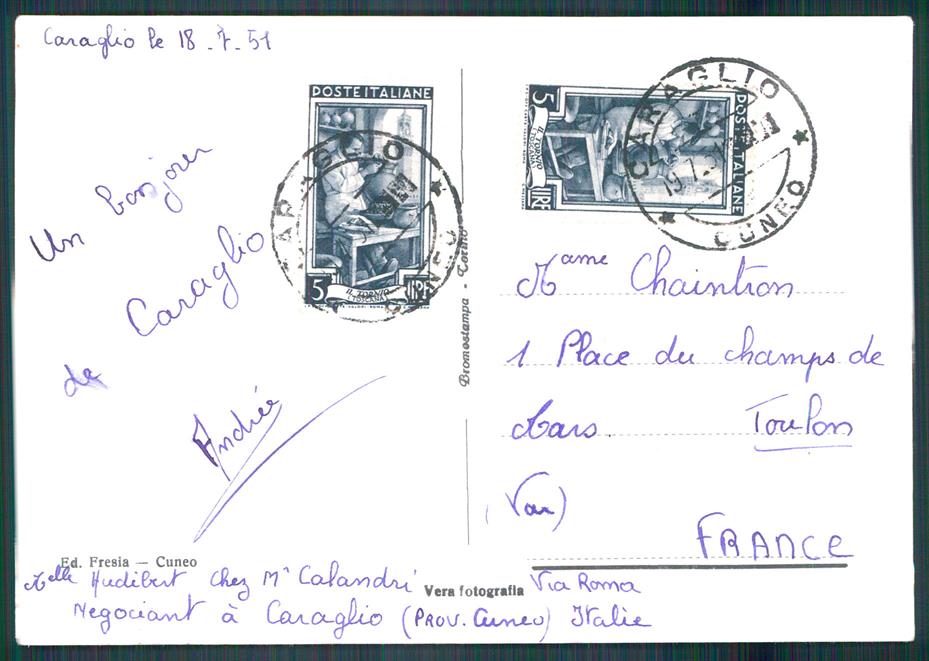 Caraglio le 18-7-51
Un bonjour
de Caraglio
Andrée
POSTE ITALIANE
5 LIRE
IL TORNIO
TOSCANA
CARAGLIO
CUNEO
POSTE ITALIANE
5 LIRE
IL TORNIO
TOSCANA
CARAGLIO
19.7.51
CUNEO
Bromostampa - Torino
Mame Chaintron
1 Place du champs de
Mars. Toulon
(Var)
FRANCE
Ed. Fresia — Cuneo
Vera fotografia
Melle Audibert chez Mr Calandri Via Roma
Negociant à Caraglio (PROV. Cuneo) Italie